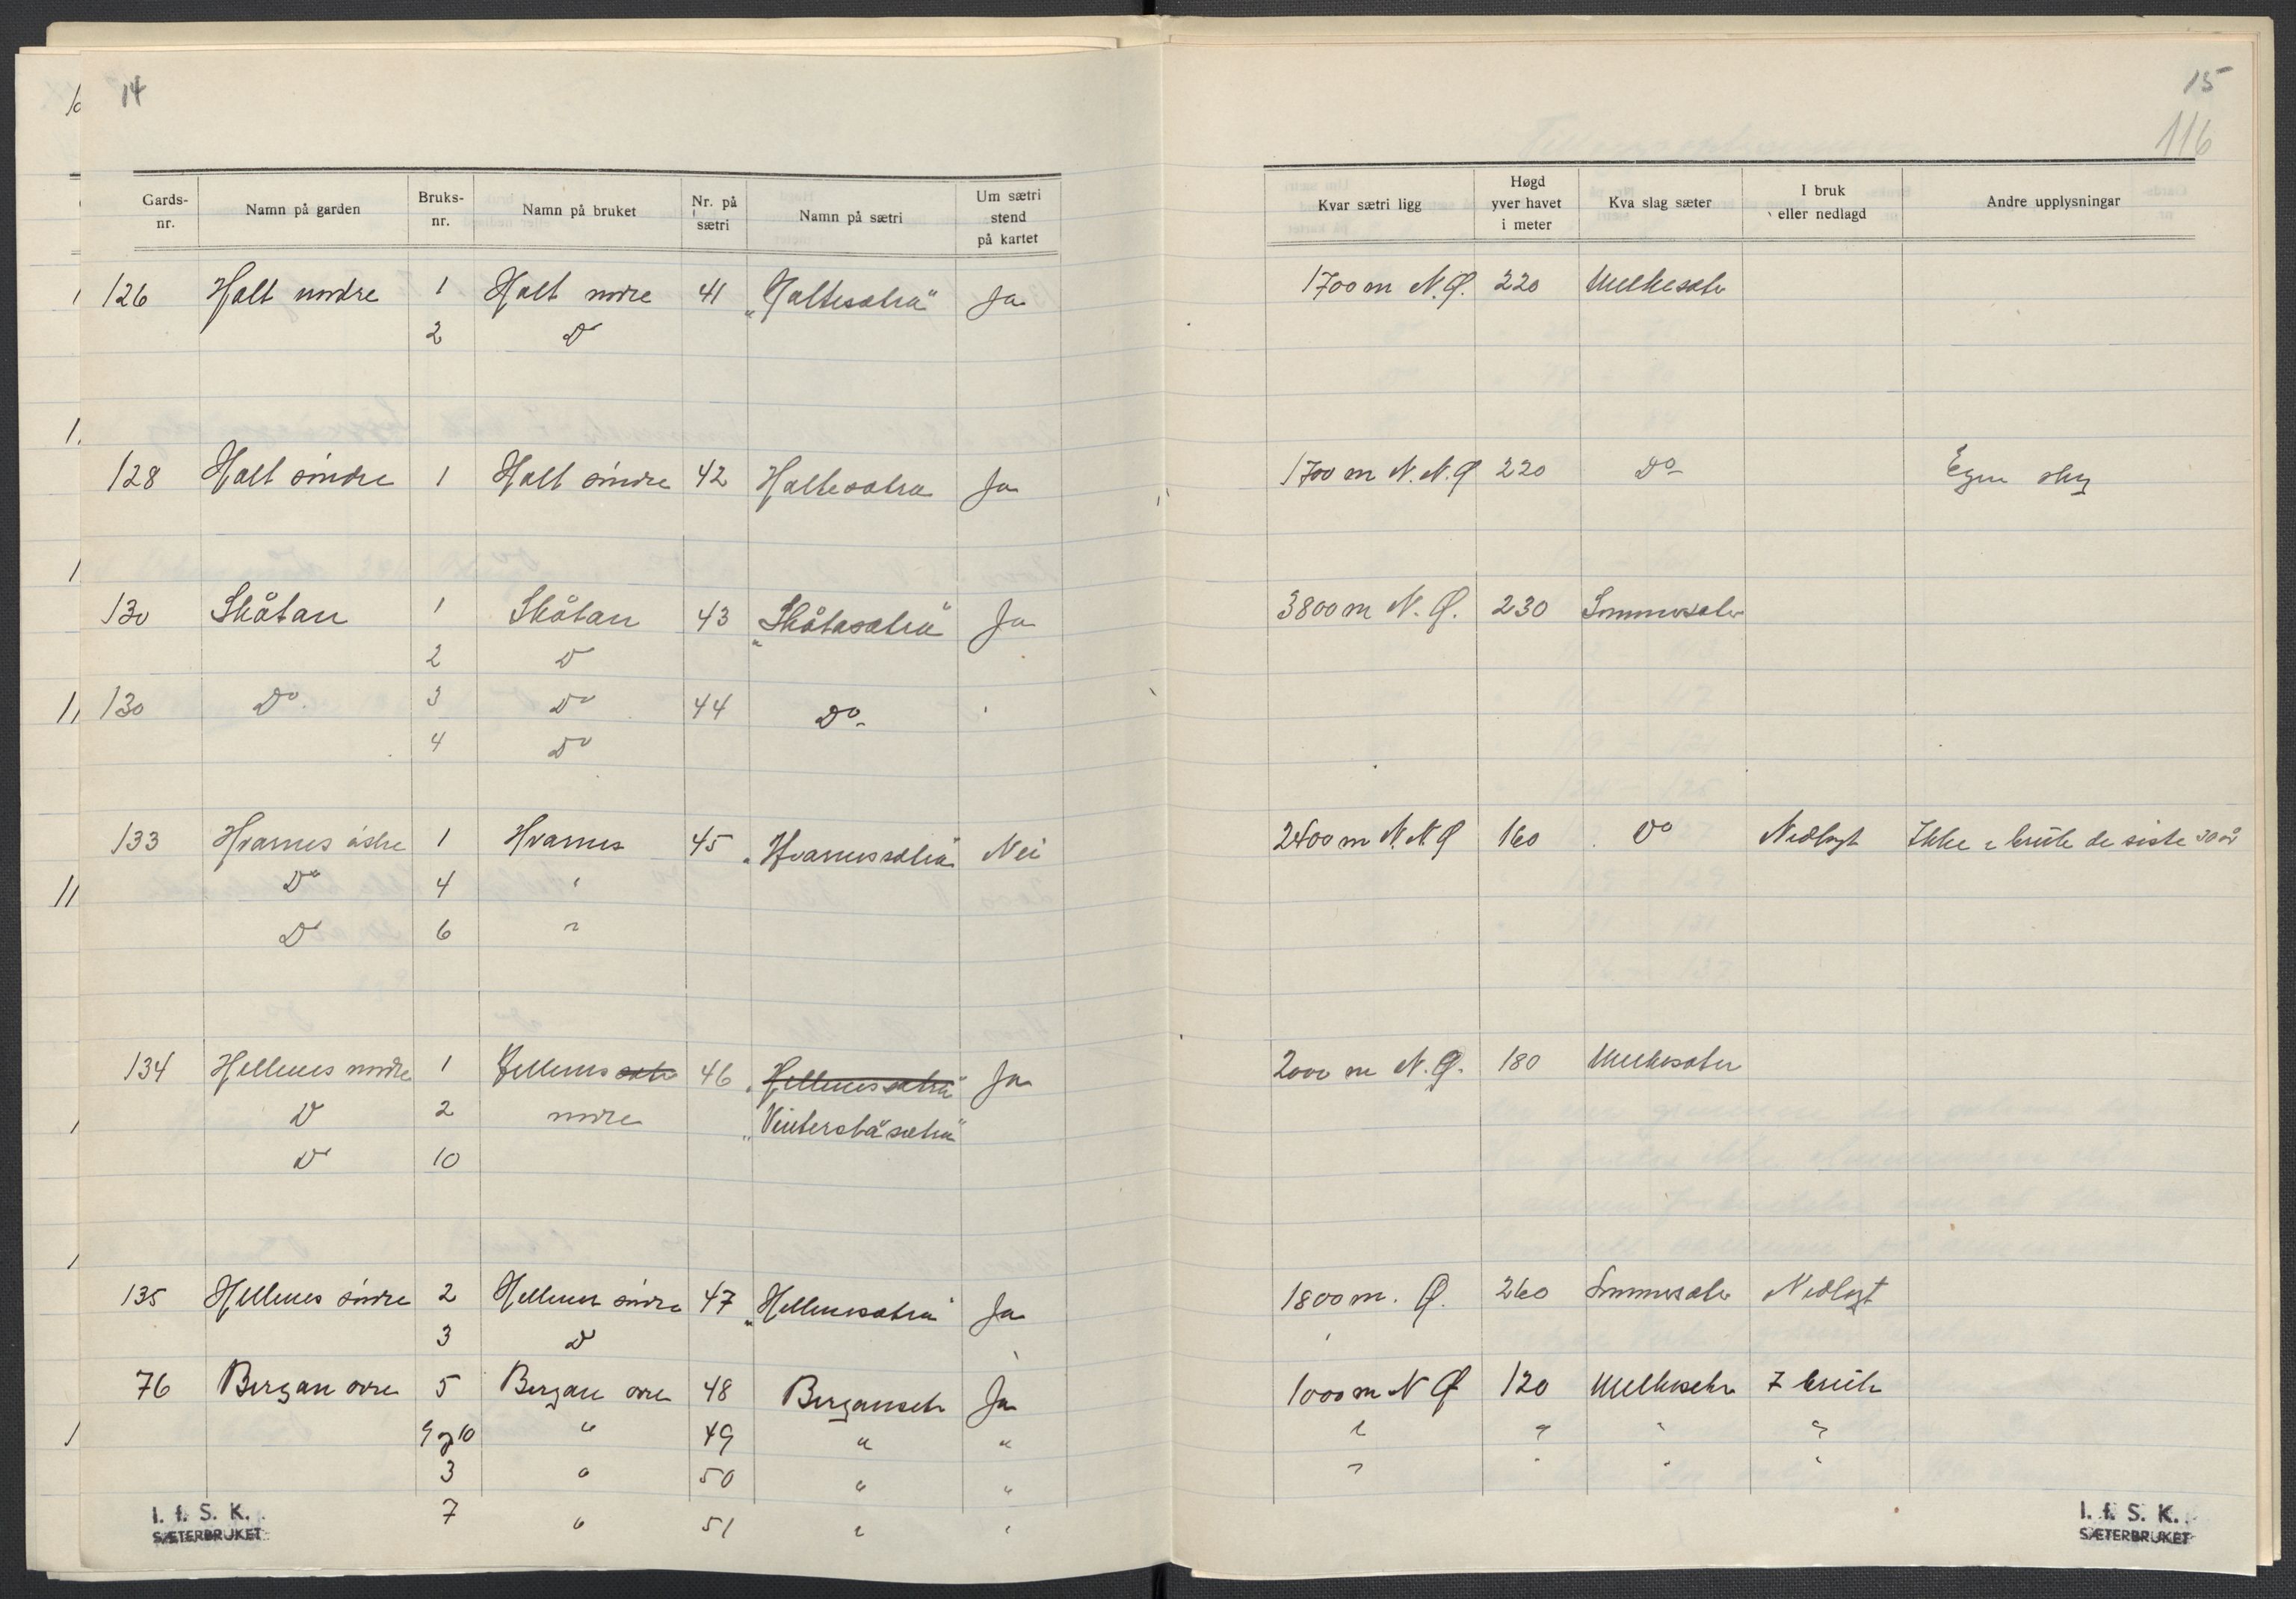 14
Gards-nr. Namn på garden Bruks-nr. Namn på bruket Nr. på sætri Namn på sætri Um sætri stend på kartet
126 Holt nordre 1 Holt nordre 41 „Holtesætra" Ja
2 Do
128 Holt søndre 1 Holt søndre 42 Holtesætra Ja
130 Skåtan 1 Skåtan 43 „Skåtasætra" Ja
2 Do
130 Do. 3 Do 44 Do-
4 Do
133 Hvarnes østre 1 Hvarnes 45 „Hvarnessætra" Nei
Do 4 "
Do 6 "
134 Hellenes nordre 1 Hellenes sæter 46 „Hellenessætra" Ja
Do 2 nordre „Vinterståsætra"
Do 10
135 Hellenes søndre 2 Hellenes søndre 47 „Hellenessætra" Ja
3 Do
76 Bergan øvre 5 Bergan øvre 48 Bergansætr Ja
9 og 10 " 49 " "
3 " 50 " "
7 " 51 " "
I. f. S. K.
SÆTERBRUKET
15
116
Kvar sætri ligg Høgd yver havet i meter Kva slag sæter I bruk eller nedlagd Andre upplysningar
1700 m N.Ø. 220 Melkesæter
1700 m N.N.Ø 220 Do- Egen skog
3800 m N.Ø. 230 Sommersæter
2400 m N.N.Ø 160 Do Nedlagt Ikke i bruk de siste 30 år
2000 m N.Ø. 180 Melkesæter
1800 m. Ø. 260 Sommersæter Nedlagt
1000 m N Ø 120 Melkesæter I bruk
" " " "
" " " "
I. f. S. K.
SÆTERBRUKET